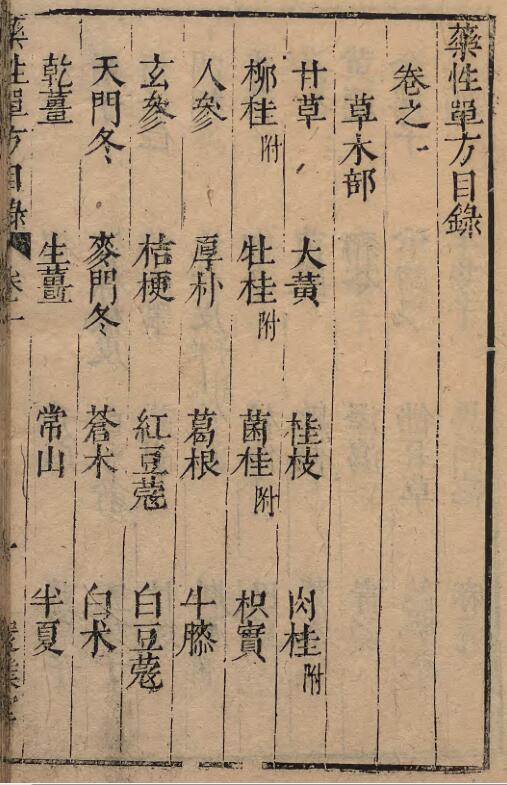 藥性單方目錄
卷之一
草木部
甘草 大黃 桂枝 肉桂附
柳桂附 牡桂附 菌桂附 枳實
人參 厚朴 葛根 牛膝
玄參 桔梗 紅豆蔻 白豆蔻
天門冬 麥門冬 蒼术 白术
乾薑 生薑 常山 半夏
藥性單方目錄 卷一 一